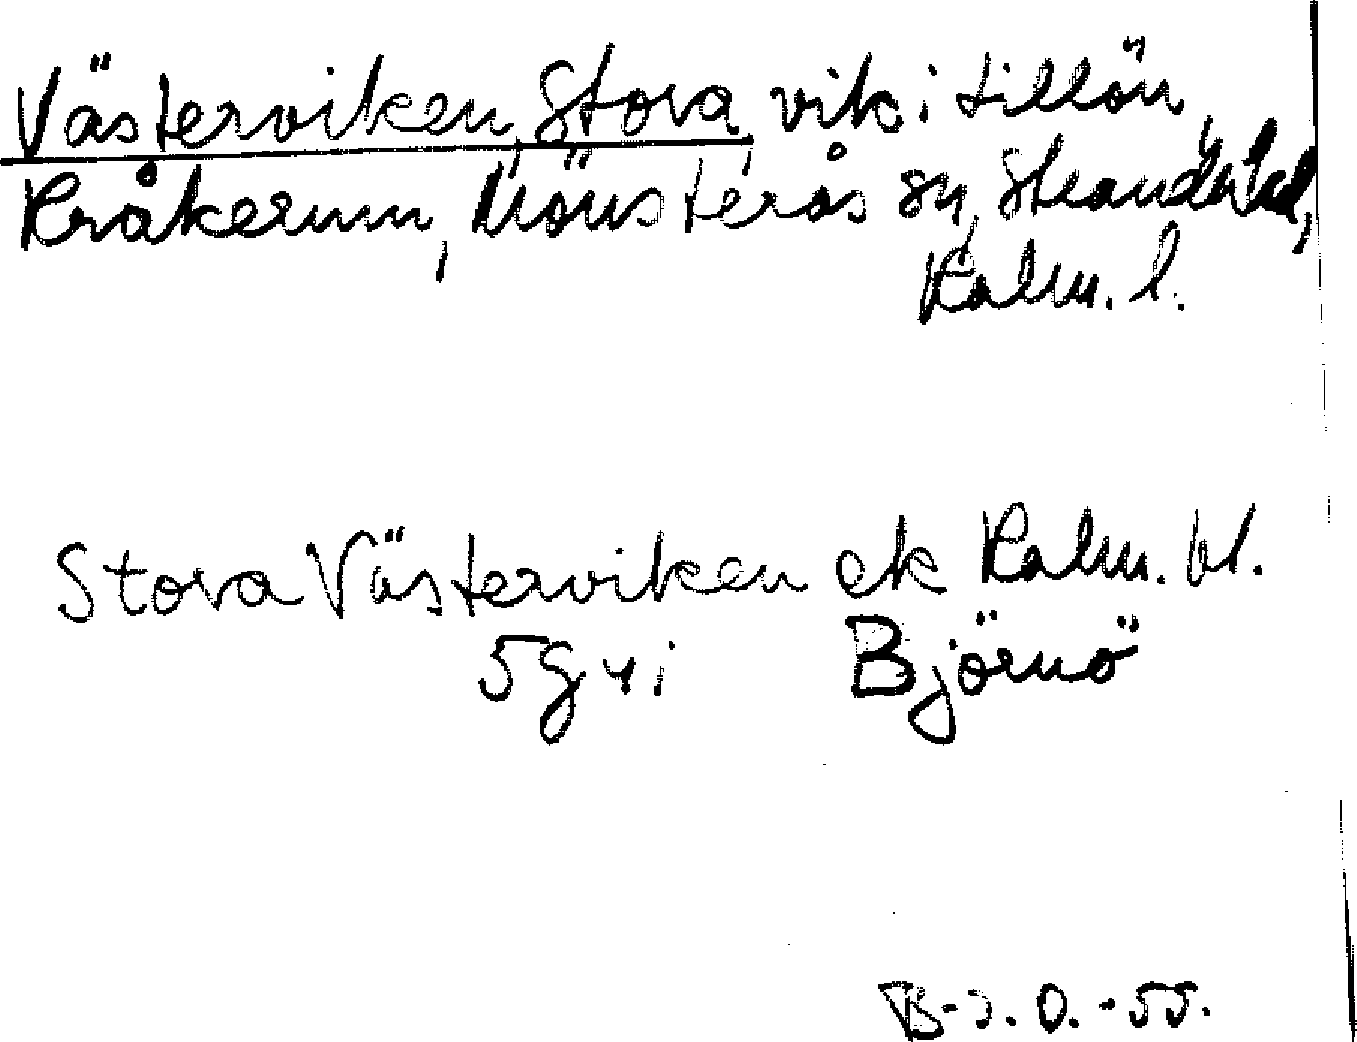 Västerviken, Stora, vik i till ön
Kråkerum, Mönsterås sn, Stranda hd,
Kalm. l.
Stora Västerviken ek Kalm. bl.
5G vi Björnö
B-J. O. -55.